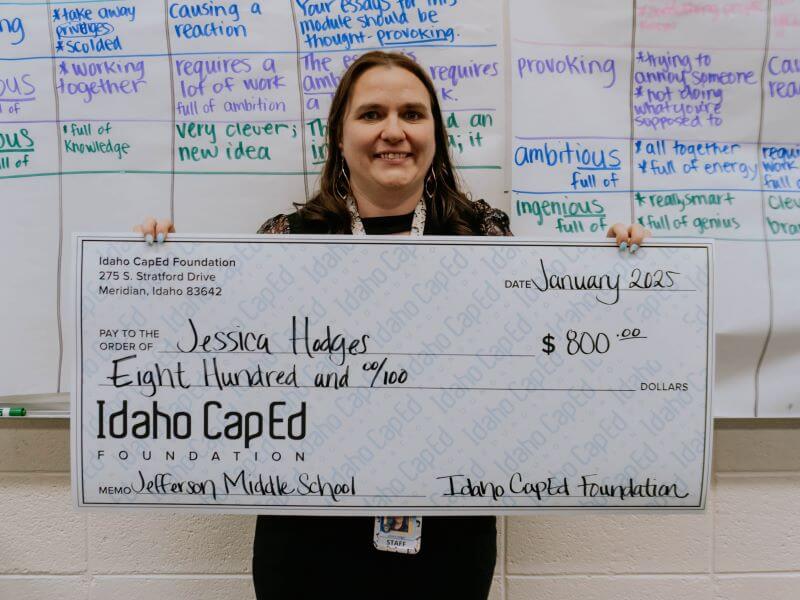 *take away
privileges
*scolded
causing a
reaction
Your essays for this
module should be
thought-provoking.
*working
together
requires a
lot of work
full of ambition
The
requires
a
work.
*full of
Knowledge
very clever;
new idea
an
it
ous
full of
provoking
*trying to
annoy someone
*not doing
what you're
supposed to
ambitious
full of
*all together
*full of energy
ingenious
full of
*really smart
*full of genius
Idaho CapEd Foundation
275 S. Stratford Drive
Meridian, Idaho 83642
DATE January 2025
PAY TO THE
ORDER OF Jessica Hodges $ 800.00
Eight Hundred and 00/100 DOLLARS
Idaho CapEd
FOUNDATION
MEMO Jefferson Middle School Idaho CapEd Foundation
STAFF